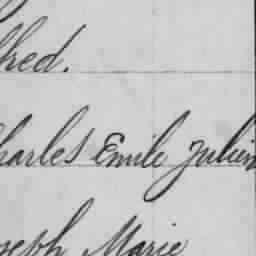 hed.
harles Emile Julien
seph Marie